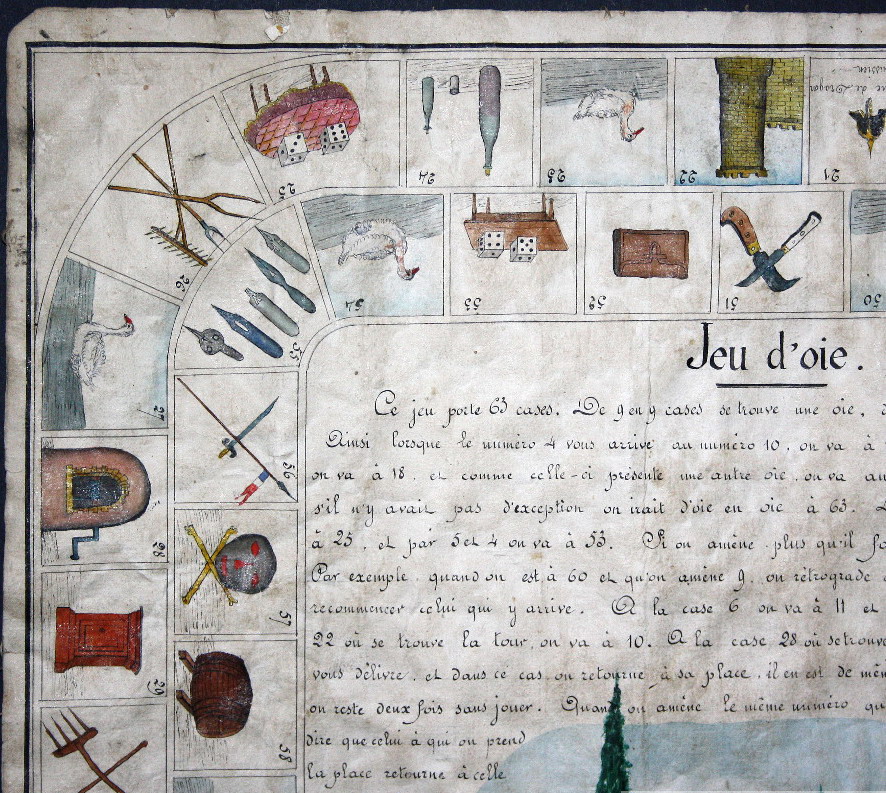 Jeu d'oie.
Ce jeu porte 63 cases. De 9 en 9 cases se trouve une oie,
Ainsi lorsque le numéro 4 vous arrive au numéro 10, on va à
on va à 18, et comme celle-ci présente une autre oie, on va au
s'il n'y avait pas d'exception on irait d'oie en oie à 63.
à 25, et par 5 et 4 on va à 53. Si on amène plus qu'il
Par exemple, quand on est à 60 et qu'on amène 9, on rétrograde
recommencer celui qui y arrive. A la case 6 on va à 11 et
22 où se trouve la tour, on va à 10. A la case 28 où se trouve
vous délivre, et dans ce cas on retourne à sa place, il en est de
on reste deux fois sans jouer. Quand on amène le même numéro
dire que celui à qui on prend
la place retourne à celle
25
24
23
22
21
54
53
52
51
50
26
55
27
56
28
57
29
58